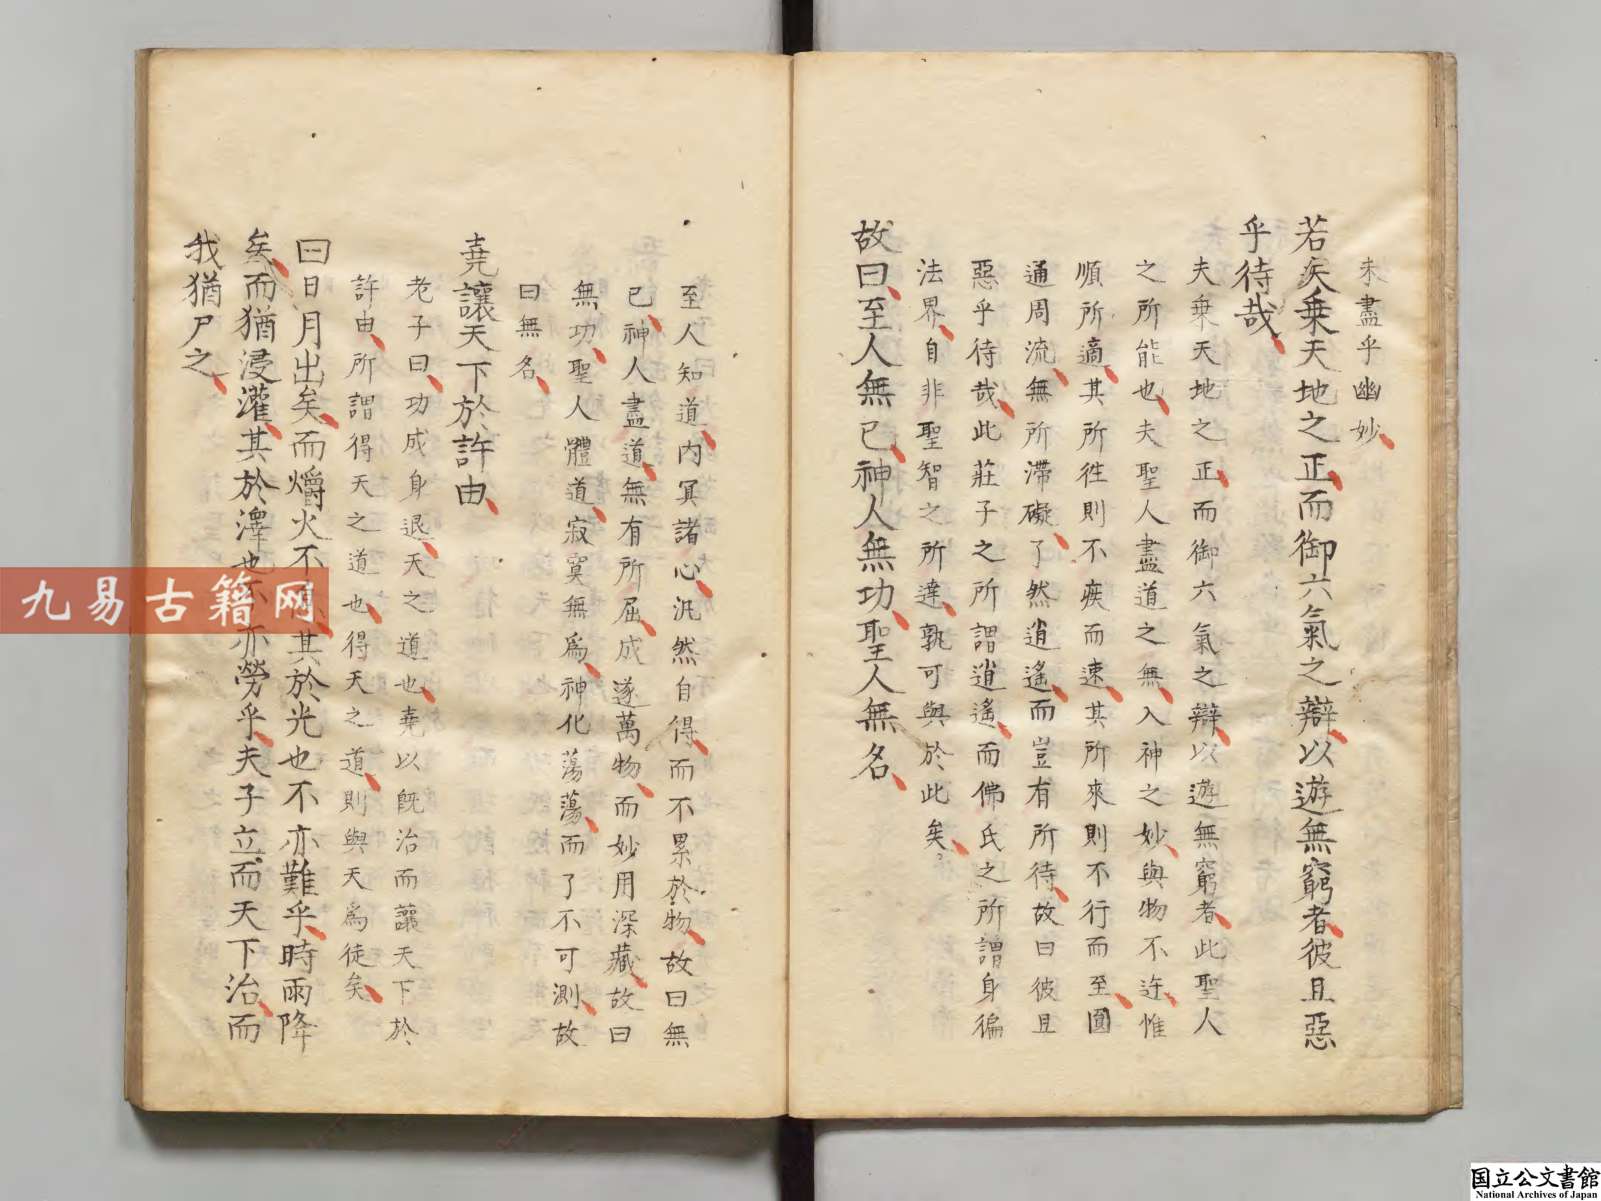 未盡乎幽妙
若夫乗天地之正而御六氣之辯以遊無窮者彼且惡
乎待哉
夫乗天地之正而御六氣之辯以遊無窮者此聖人
之所能也夫聖人盡道之無入神之妙與物不迕惟
順所適其所徃則不疾而速其所來則不行而至圓
通周流無所滯礙了然逍遙而豈有所待故曰彼且
惡乎待哉此莊子之所謂逍遙而佛氏之所謂身徧
法界自非聖智之所達孰可與於此矣
故曰至人無已神人無功聖人無名
至人知道内冥諸心汎然自得而不累於物故曰無
已神人盡道無有所屈成遂萬物而妙用深藏故曰
無功聖人體道寂寞無爲神化蕩蕩而了不可測故
曰無名
堯讓天下於許由
老子曰功成身退天之道也堯以旣治而讓天下於
許由所謂得天之道也得天之道則與天爲徒矣
曰日月出矣而爝火不息其於光也不亦難乎時雨降
矣而猶浸灌其於澤也不亦勞乎夫子立而天下治而
我猶尸之
九易古籍网
国立公文書館
National Archives of Japan